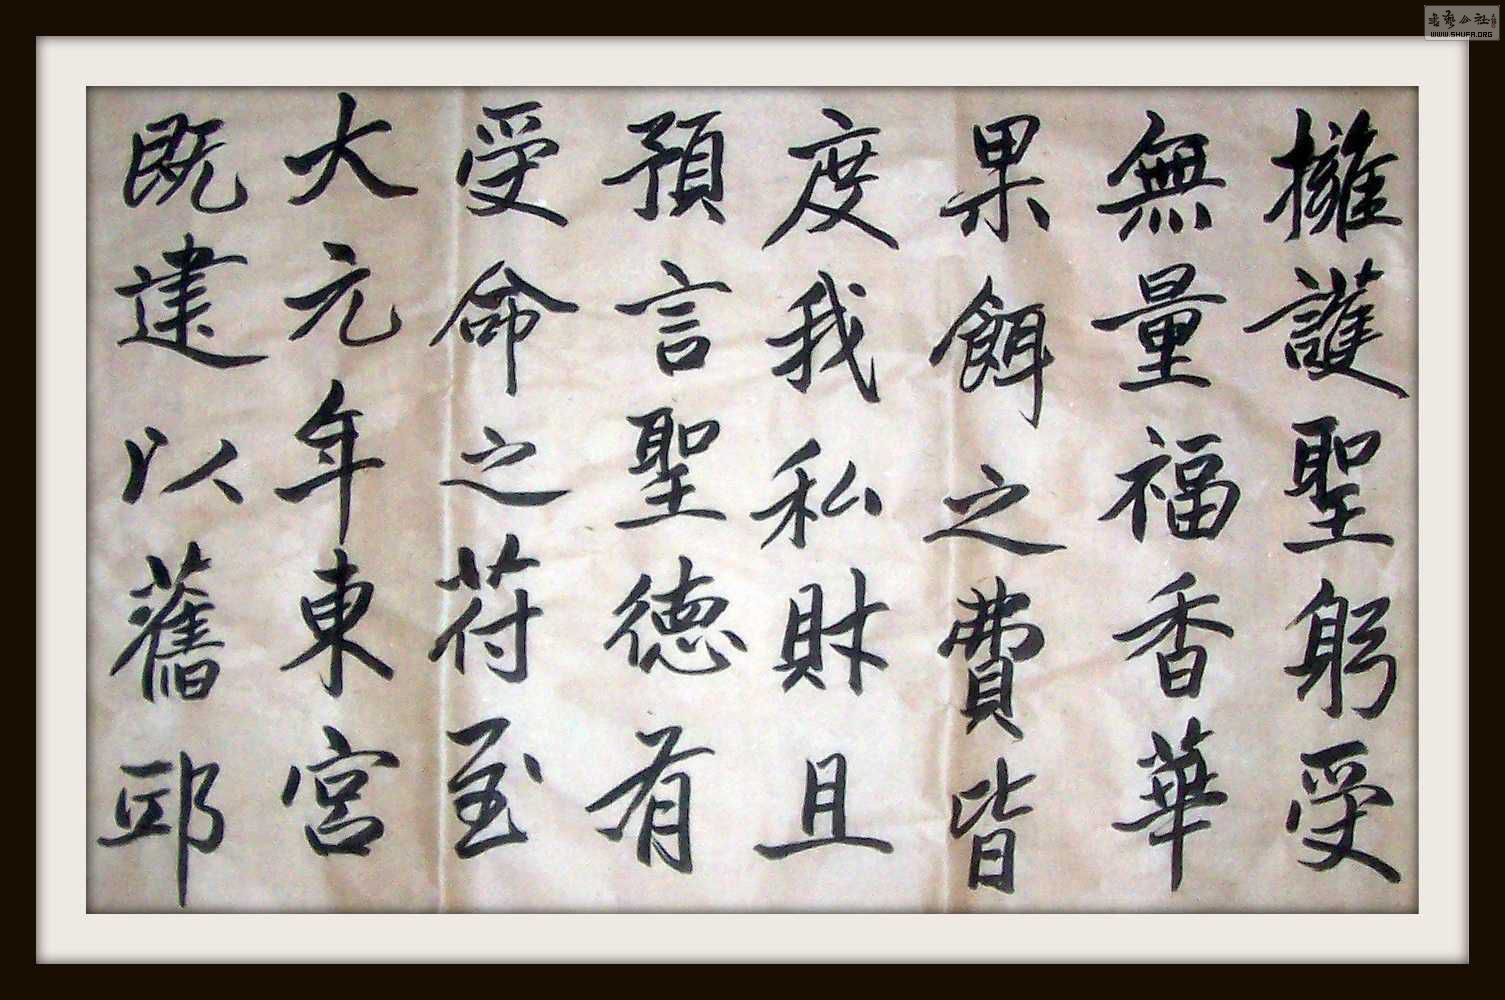 擁護聖躬受
無量福香華
果餌之費皆
度我私財且
預言聖德有
受命之符至
大元年東宮
既建以舊邸
書藝公社
WWW.SHUFA.ORG